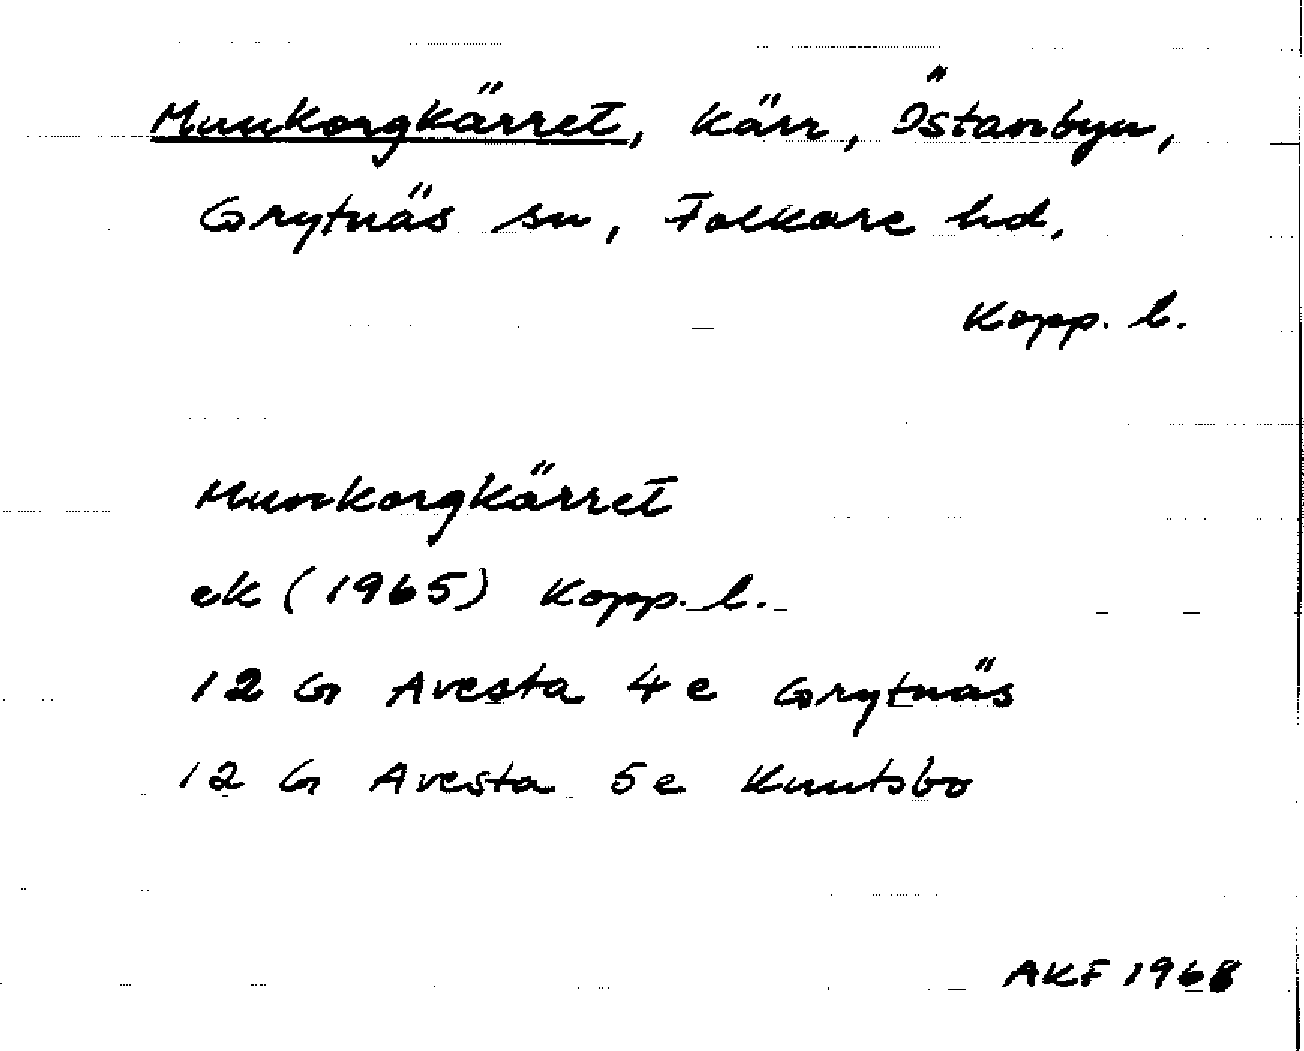 Munkorgkärret, kärr, Östanbyn,
Grytnäs sn, Folkare hd,
Kopp. l.
Munkorgkärret
ek (1965) Kopp. l.
12 G Avesta 4 e Grytnäs
12 G Avesta 5 e Knutsbo
AKF 1968